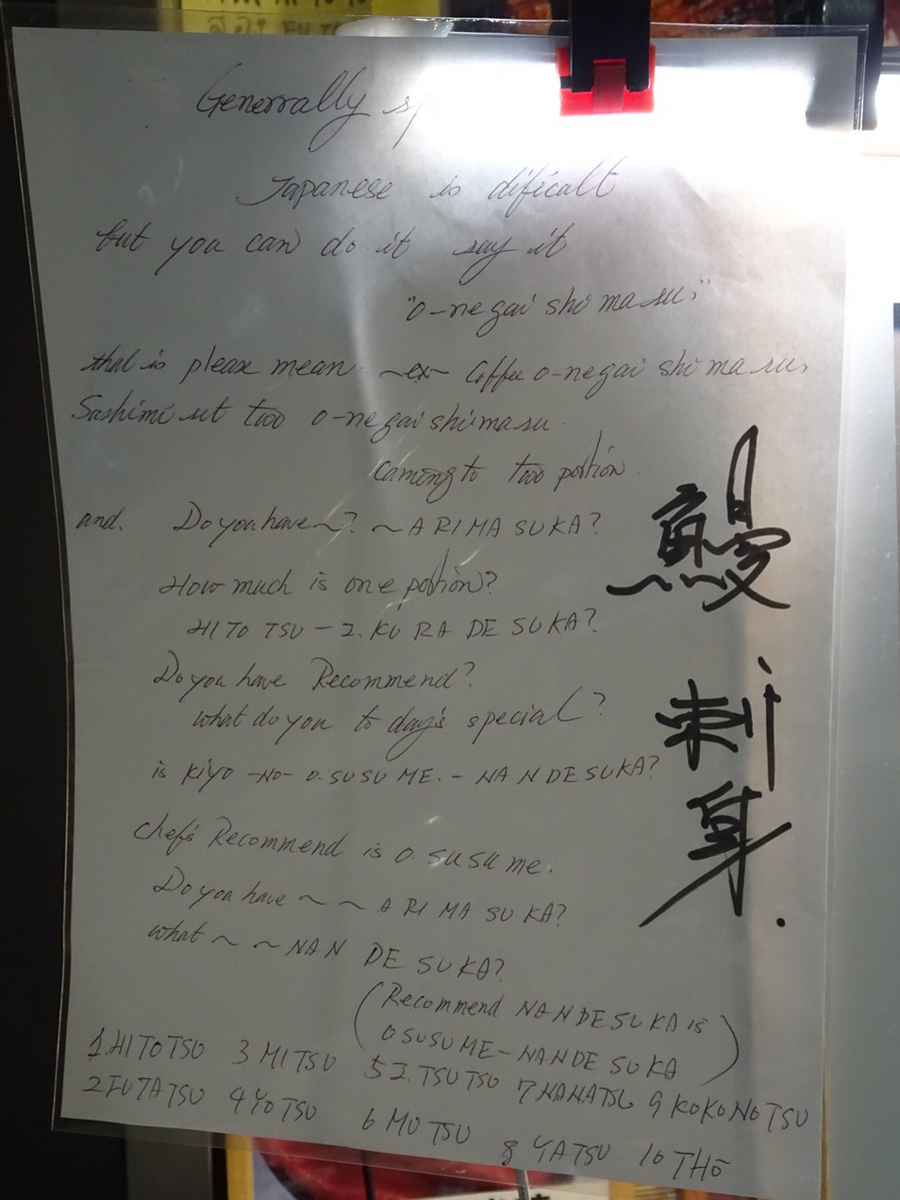 Generrally
Japanese is dificalt
but you can do it say it
"o-negai shi ma su,"
that is please mean ~ex~ Coffee o-negai shi ma su,
Sashimi set two o-negai shimasu
caming to two portion
and. Do you have~? ~ARIMASUKA?
How much is one portion?
HITOTSU-I.KURA DESUKA?
Do you have Recommend?
what do you to day's special?
is KiYO-NO-O.SUSUME.-NANDESUKA?
chef's Recommend is O SUSUme.
Do you have ~ ~ ARIMASUKA?
what ~ ~ NAN DESUKA?
(Recommend NANDESUKA is
OSUSUME-NANDE SUKA)
1.HITOTSU 3 MITSU 5 I.TSUTSU 7 NANATSU 9 KOKONOTSU
2 FUTATSU 4 YOTSU 6 MUTSU 8 YATSU 10 THO
鰻
刺身.